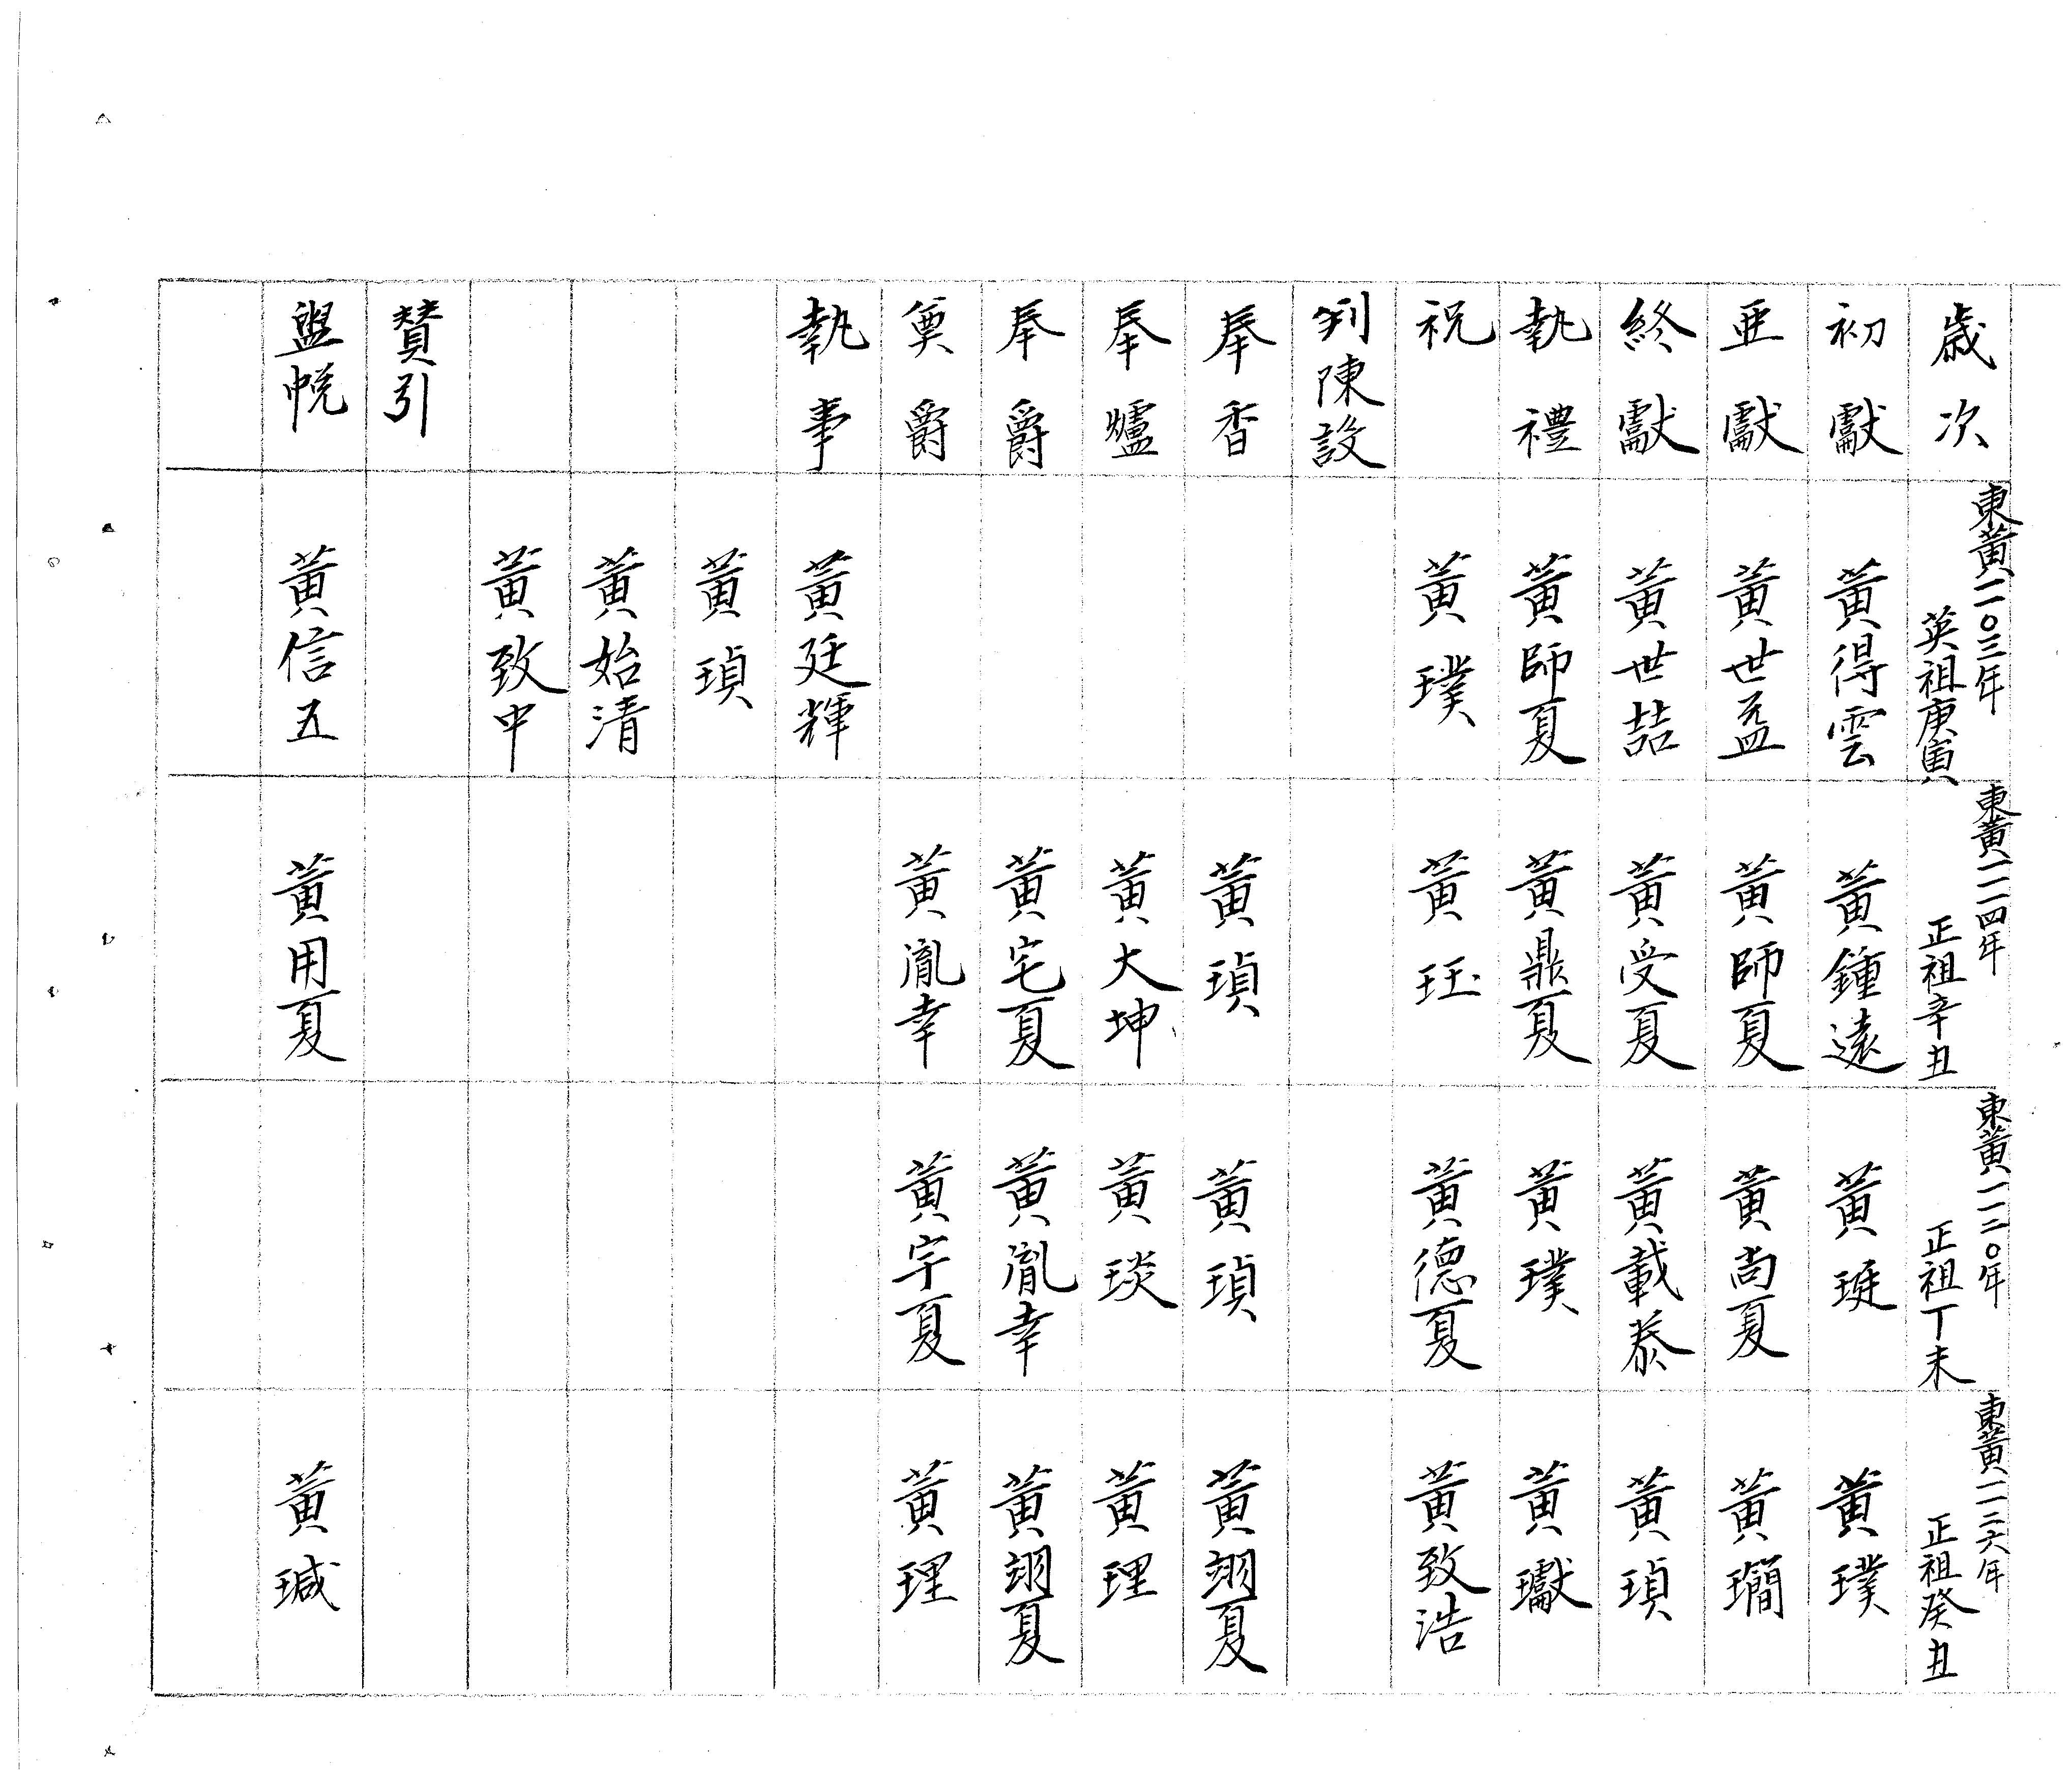 歲次 東黃一一0三年 英祖庚寅 東黃一一一四年 正祖辛丑 東黃一一二0年 正祖丁未 東黃一一二六年 正祖癸丑
初獻 黃得雲 黃鍾遠 黃珽 黃璞
亜獻 黃世益 黃師夏 黃尚夏 黃
終獻 黃世喆 黃受夏 黃載泰 黃瑱
執禮 黃師夏 黃鼎夏 黃璞 黃瓛
祝 黃璞 黃珏 黃德夏 黃致浩
列陳設
奉香 黃瑱 黃瑱 黃翊夏
奉爐 黃大坤 黃琰 黃理
奉爵 黃宅夏 黃胤幸 黃翊夏
奠爵 黃胤幸 黃宇夏 黃理
執事 黃廷輝
黃瑱
黃始清
黃致中
賛引
盥帨 黃信五 黃用夏 黃瑊